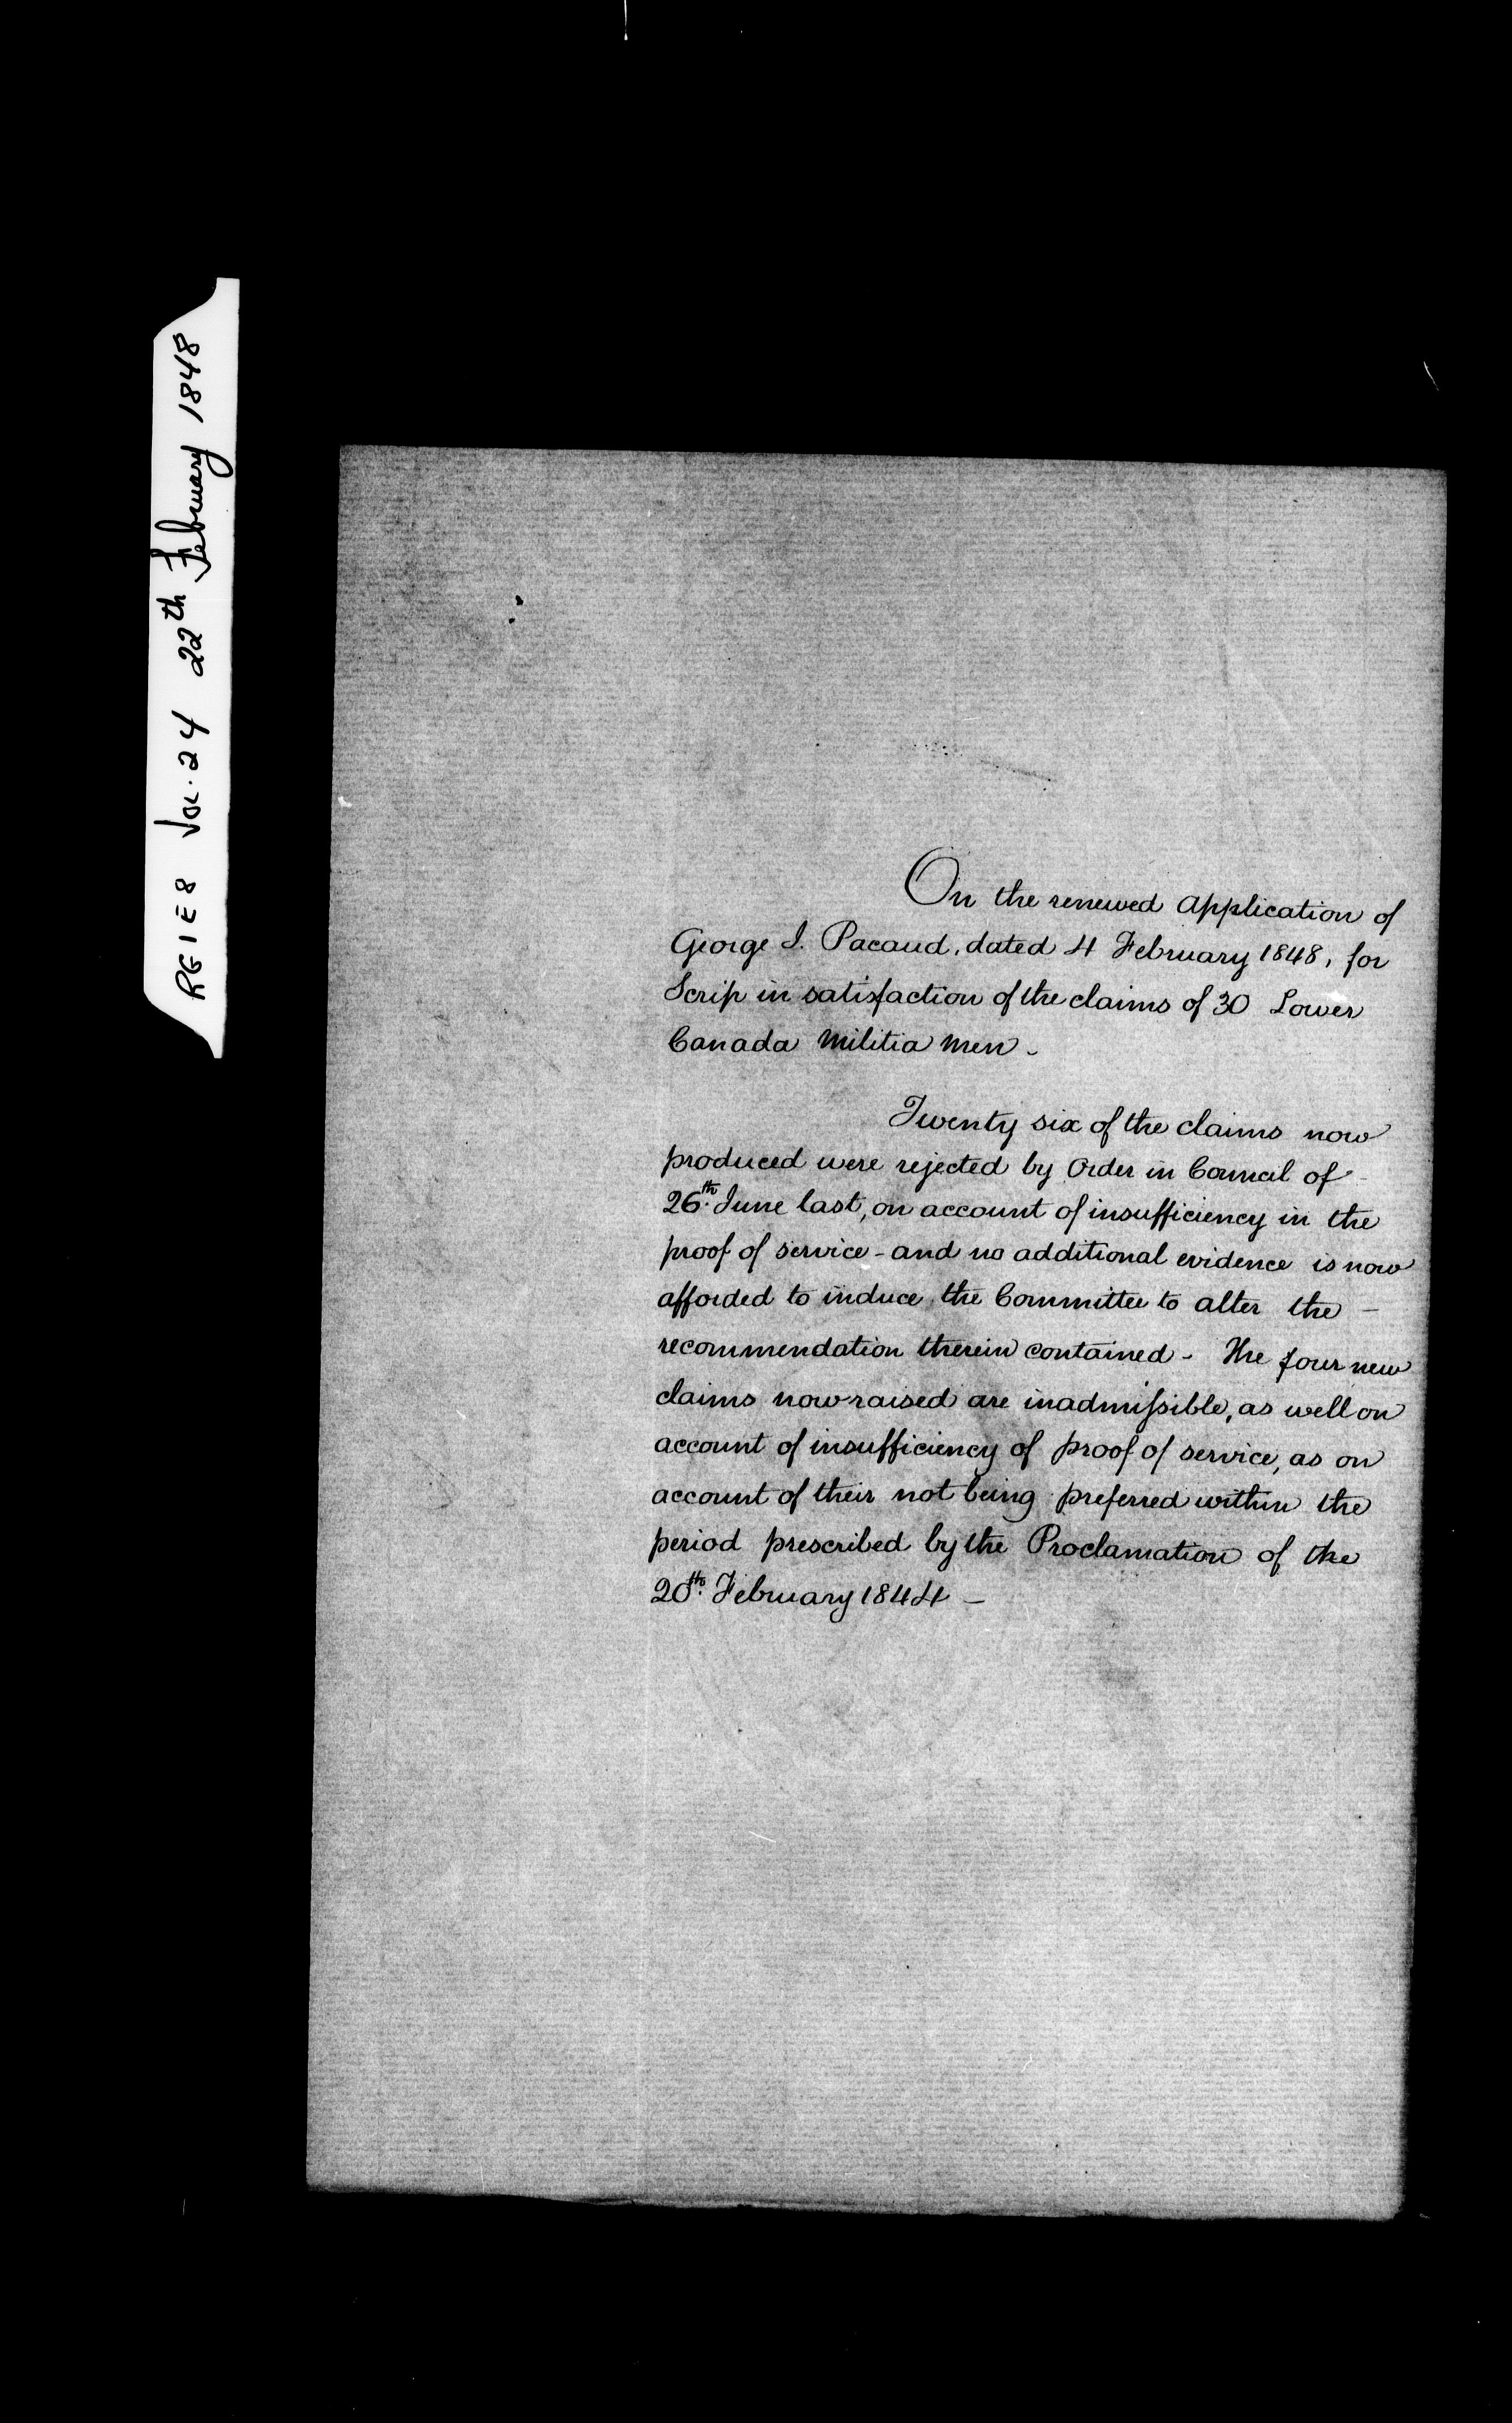 RG 1 E 8 Vol. 24 22th February 1848
On the renewed application of
George J. Pacaud, dated 4 February 1848, for
Scrip in satisfaction of the claims of 30 Lower
Canada Militia Men -
Twenty six of the claims now
produced were rejected by Order in Council of
26th. June last, on account of insufficiency in the
proof of service - and no additional evidence is now
afforded to induce the Committee to alter the -
recommendation therein contained - The four new
claims now raised are inadmissible, as well on
account of insufficiency of proof of service, as on
account of their not being preferred within the
period prescribed by the Proclamation of the
20th. February 1844 -